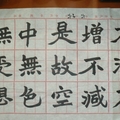 增不減
是故空
中無色
無受想